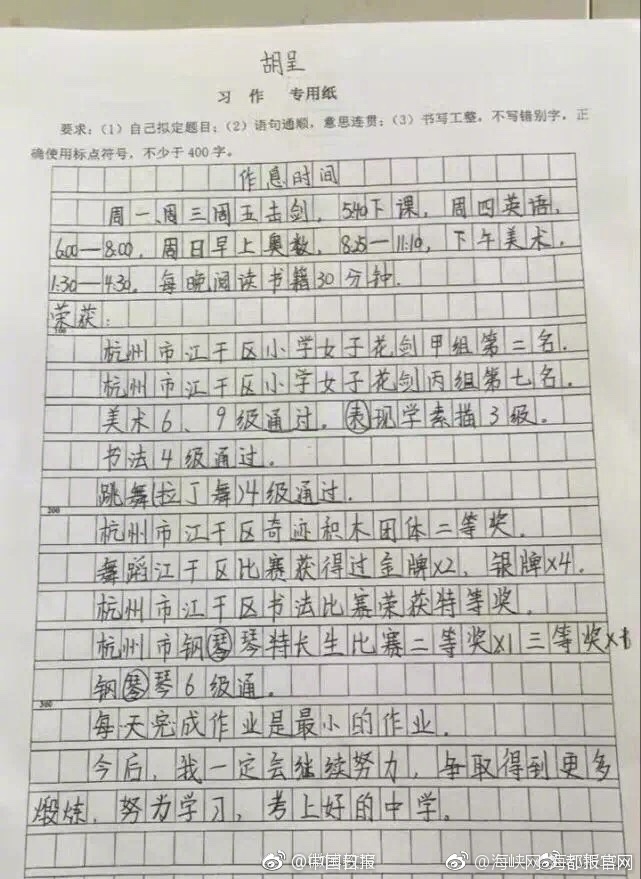 胡呈
习 作 专用纸
要求:(1)自己拟定题目;(2)语句通顺,意思连贯;(3)书写工整,不写错别字,正
确使用标点符号,不少于400字。
作息时间
周一、周三周五击剑,5:40下课,周四英语,
6:00—8:00,周日早上奥数,8:25—11:10,下午美术,
1:30—4:30。每晚阅读书籍30分钟.
荣获:
100
杭州市江干区小学女子花剑甲组第二名.
杭州市江干区小学女子花剑丙组第七名.
美术6、9级通过。表现学素描3级。
书法4级通过。
跳舞(拉丁舞)4级通过.
200
杭州市江干区奇迹积木团体二等奖.
舞蹈江干区比赛获得过金牌×2、银牌×4.
杭州市江干区书法比赛荣获特等奖.
杭州市钢琴琴特长生比赛二等奖×1三等奖×
钢琴琴6级通。
300
每天完成作业是最小的作业.
今后,我一定会继续努力,争取得到更多
煅炼,努力学习,考上好的中学。
@中国日报 @海峡网 海都报官网